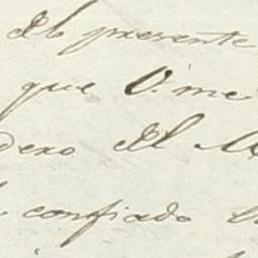 del presente
que V. me
dero del M
confiado